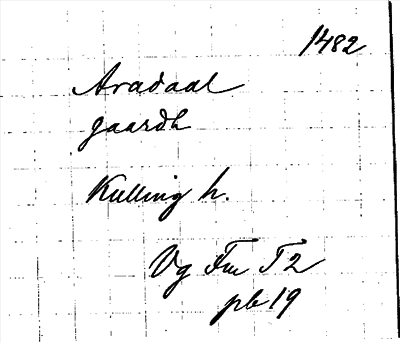 1482
Aradaal
gaardh
Kulling h.
Vg Fm T2
pb 19